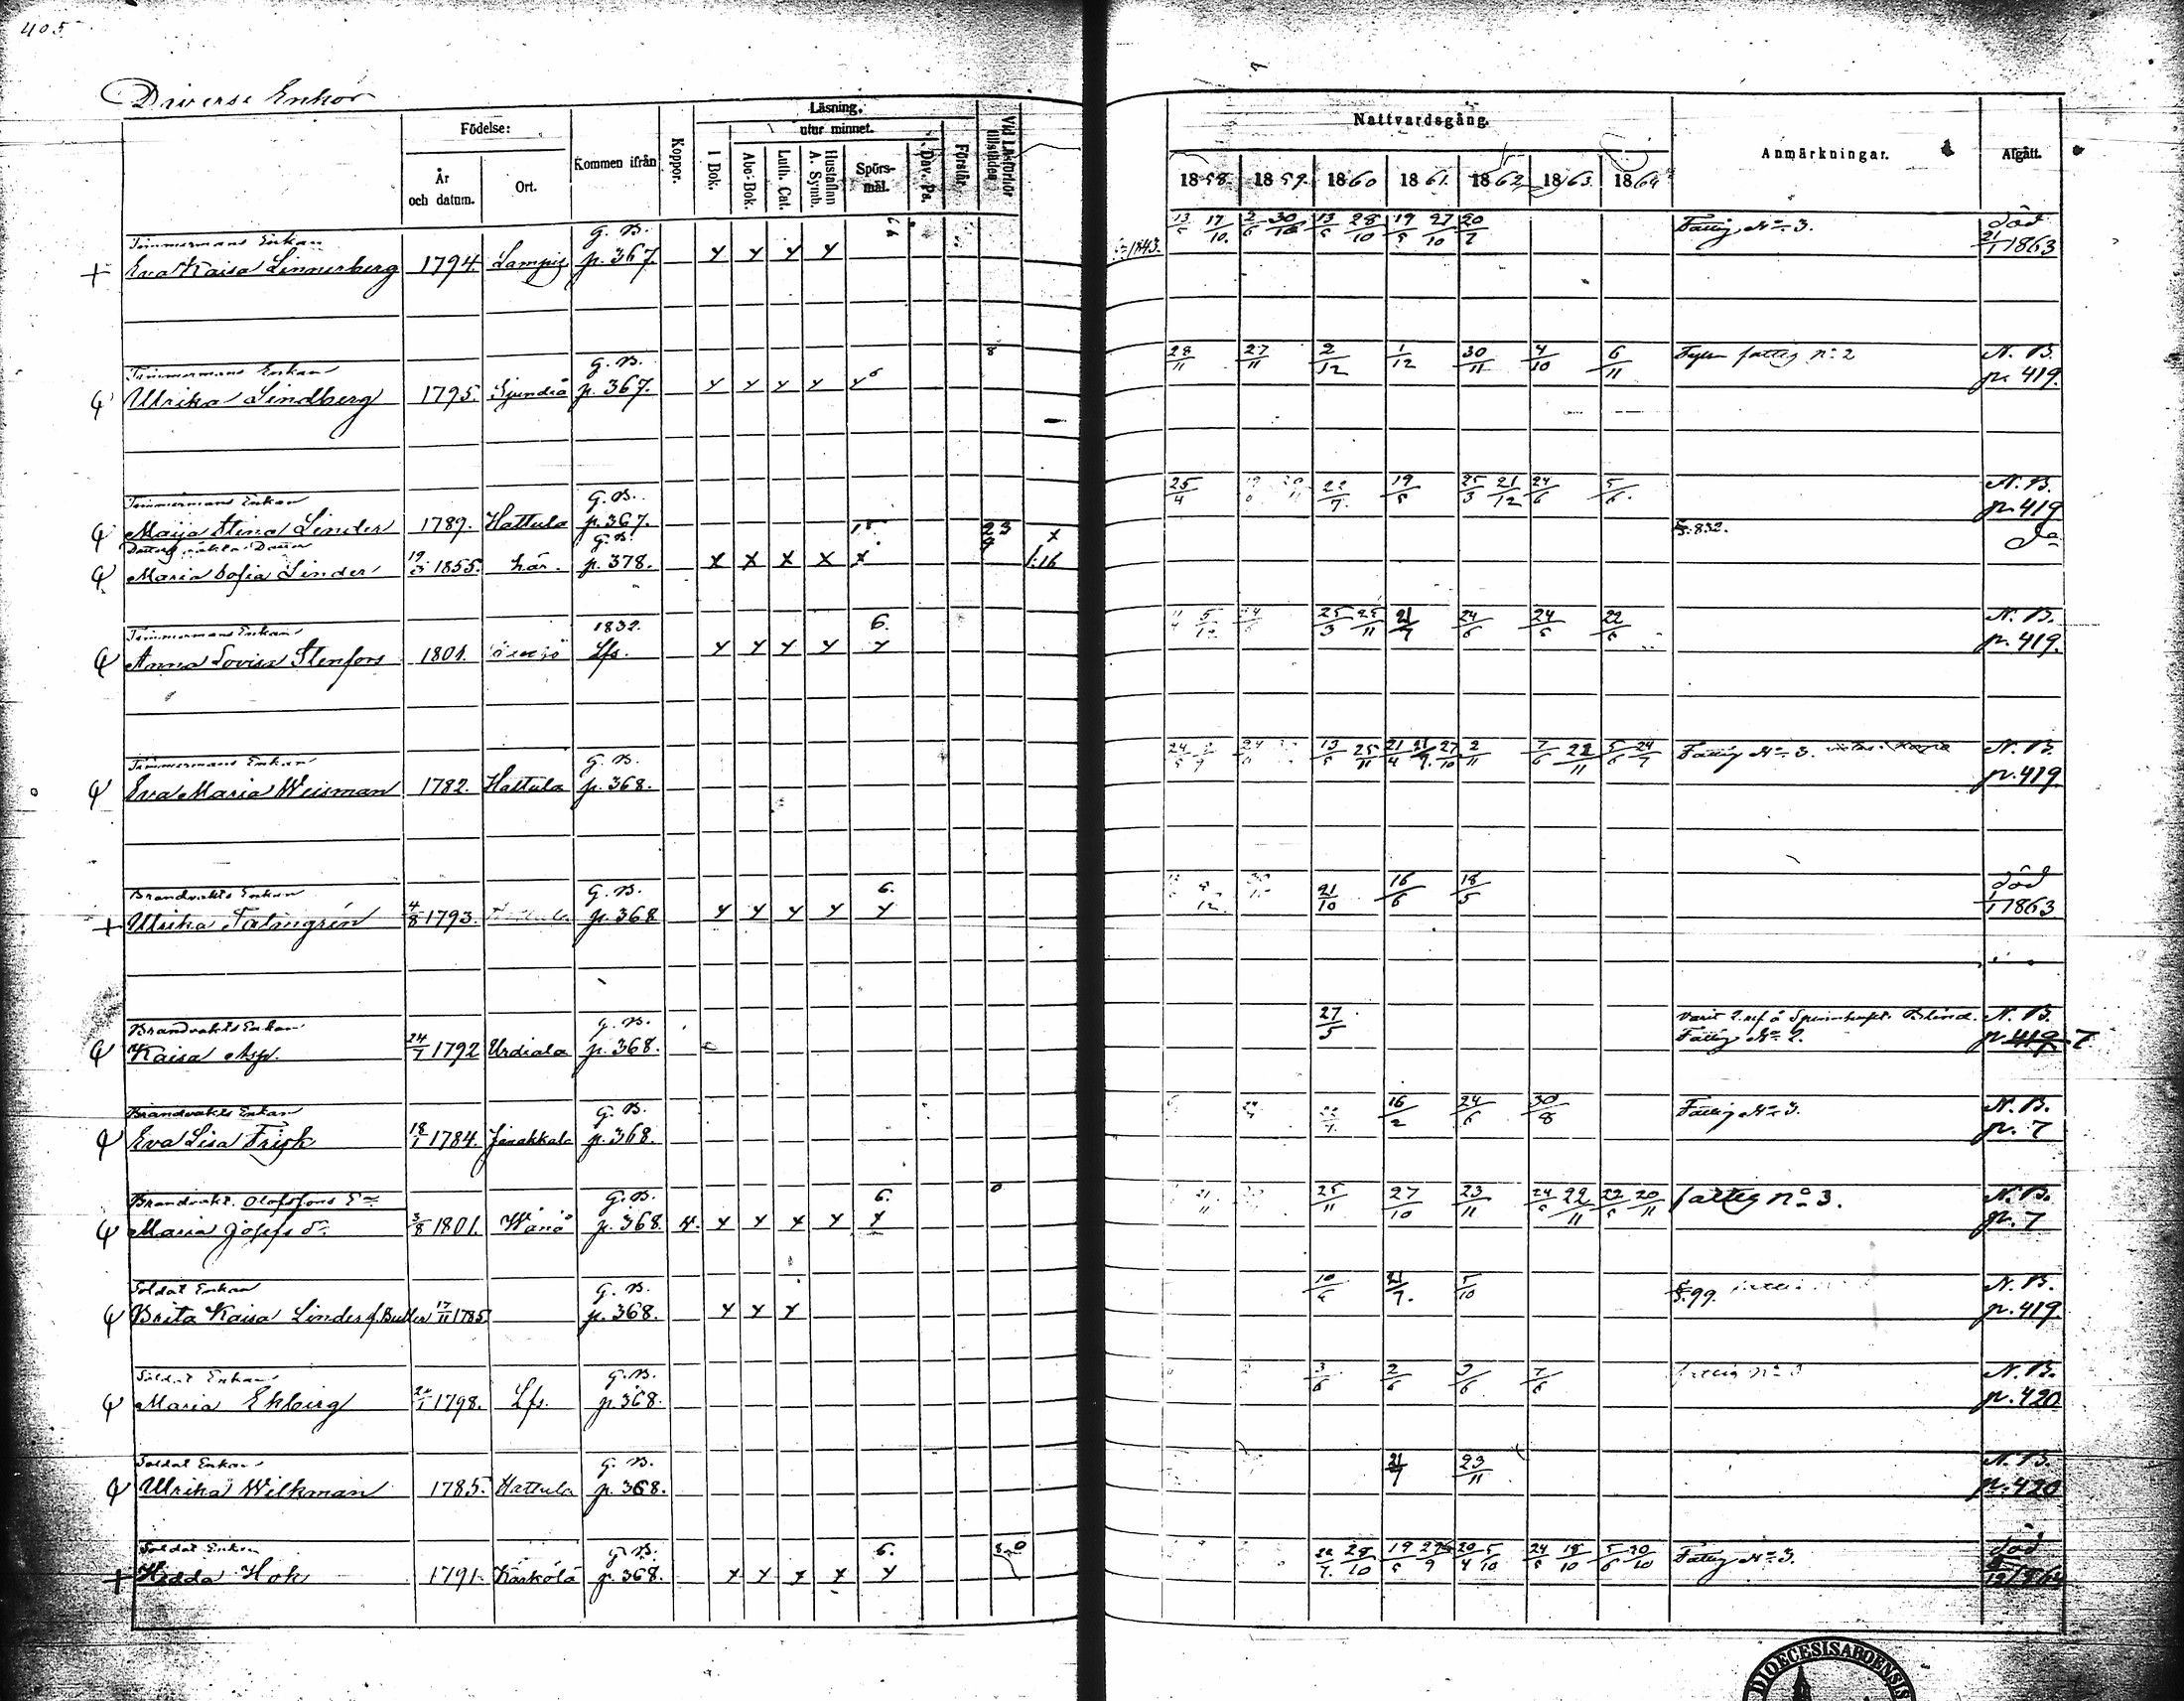 405
Diverse Enkor
Födelse:
År och datum.
Ort.
Kommen ifrån
Koppor.
Läsning.
utur minnet.
I Bok.
Abc-Bok.
Luth. Cat.
Hustaflan A. Symb.
Spörs-mål.
Dav. Ps.
Förstår.
Vid Läsförhör tillstädes
Nattvardsgång.
1858. 1859. 1860 1861. 1862 1863. 1864
Anmärkningar.
Afgått.
Timmermans Enkan G. B. 13/5 17/10. 30/10 28/10 19/5 27/10 Fattig No 3. död
+ Eva Kaisa Linnerberg 1794 Lampis p. 367 y y y y 1843. 21/1 1863
Timmermans Enkan G. B. 8 28/11 27/11 2/12 1/12 30/11 4/10 6/11 fattig no 2 N. B.
Ulrika Lindberg 1795. Sjundeå p. 367. y y y y y 6 p. 419.
Timmermans Enkan G. B. 25/4 22/7. 19/5 25/3 21/12 24/6 5/6. N. B.
Maija Stina Linder 1789. Hattula p. 367. 23 x §. 832. p. 419
G. B. Da
Maria Sofia Linder 19/3 1855. här. p. 378. x x x x x 1:16
Timmermans Enkan 1832. 6. 5/12 25/3 25/11 21/7 24/6 24/5 22/6 N. B.
Anna Lovisa Stenfors 1801. Lfs. y y y y y p. 419.
Timmermans Enkan G. B. 13/5 25/11 21/4 21/7 27/10 2/11 7/6 22/11 5/6 24/7 Fattig No 3. N. B.
Eva Maria Weisman 1782. Hattula p. 368. p. 419.
Brandvakts Enkan G. B. 6. 21/10 16/6 18/5 död
+ Ulrika Palmgrén 4/8 1793. p. 368 y y y y y 1/1 1863
Brandvakts Enkan G. B. 27/5 varit å Spinnhuset. Blind. N. B.
Kaisa Asp. 24/7 1792 Urdiala p. 368. Fattig No 2. p. 419. 7
Brandvakts Enkan G. B. 16/2 24/6 30/8 Fattig No 3. N. B.
Eva Lisa Frisk 18/1 1784. Janakkala p. 368. p. 7
Brandvakt. Olofsfons G. B. 6. 0 21/11 25/11 27/10 23/11 24/5 22/11 22/5 20/11 fattig no 3. N. B.
Maria Josefs dr. 3/8 1801. Wånå p. 368. y y y y y p. 7
Soldat Enkan G. B. 10/4 21/7. 5/10 §. 99. N. B.
Brita Kaisa Linder f. Butler 17/11 1785 p. 368. y y y p. 419.
Soldat Enkan G. B. 3/6 2/6 3/6 7/6 fattig no 3 N. B.
Maria Ekberg 1798. Lfs. p. 368. p. 420
Soldat Enkan G. B. 21/7 23/11 N. B.
Ulrika Wilkman 1785. Hattula p. 368. p. 420
Soldat Enkan G. B. 6. 22/7. 28/10 19/5 20/4 5/10 24/5 18/10 5/6 20/10 Fattig No 3. död
+ Hedda Hok 1791. Kärkölä p. 368. y y y y y 1864
DIOECESIS ABOENSIS